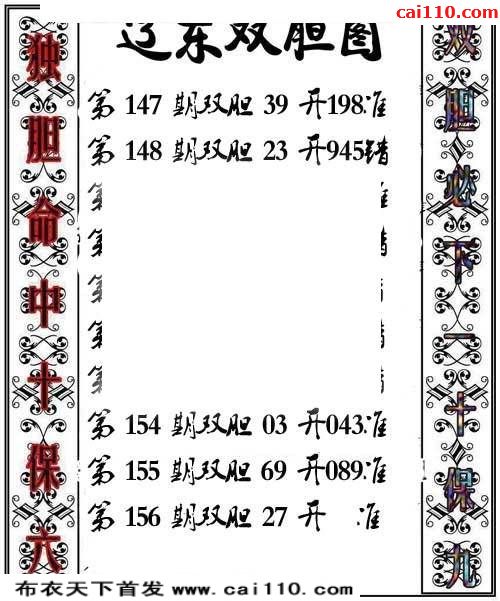 cai110.com
辽东双胆图
独胆命中十保六
双胆必下一十保九
第 147 期双胆 39 开198准
第 148 期双胆 23 开945错
第 准
第 错
第
第 错
第 错
第 154 期双胆 03 开043准
第 155 期双胆 69 开089准
第 156 期双胆 27 开 准
布衣天下首发 www.cai110.com